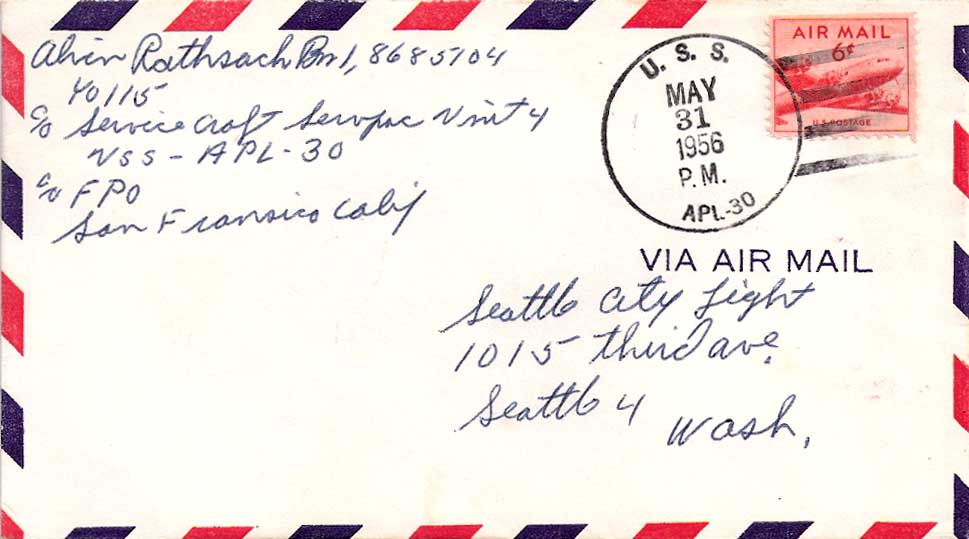 Alvin Rathsach Bm1, 8685704
YO115
c/o Service Craft Servpac Unit 4
USS - APL-30
c/o FPO
San Fransico Calif
U. S. S.
MAY
31
1956
P.M.
APL-30
AIR MAIL
6¢
U.S. POSTAGE
VIA AIR MAIL
Seattle City Light
1015 third ave.
Seattle 4
Wash,